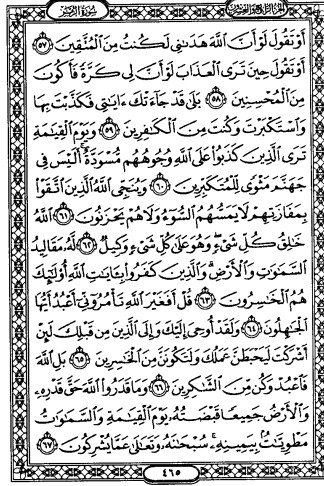 سورة الزمر
أَوْ تَقُولَ لَوْ أَنَّ ٱللَّهَ هَدَىٰنِى لَكُنتُ مِنَ ٱلْمُتَّقِينَ ٥٧
أَوْ تَقُولَ حِينَ تَرَى ٱلْعَذَابَ لَوْ أَنَّ لِى كَرَّةً فَأَكُونَ
مِنَ ٱلْمُحْسِنِينَ ٥٨ بَلَىٰ قَدْ جَآءَتْكَ ءَايَٰتِى فَكَذَّبْتَ بِهَا
وَٱسْتَكْبَرْتَ وَكُنتَ مِنَ ٱلْكَٰفِرِينَ ٥٩ وَيَوْمَ ٱلْقِيَٰمَةِ
تَرَى ٱلَّذِينَ كَذَبُوا۟ عَلَى ٱللَّهِ وُجُوهُهُم مُّسْوَدَّةٌ أَلَيْسَ فِى
جَهَنَّمَ مَثْوًى لِّلْمُتَكَبِّرِينَ ٦٠ وَيُنَجِّى ٱللَّهُ ٱلَّذِينَ ٱتَّقَوْا۟
بِمَفَازَتِهِمْ لَا يَمَسُّهُمُ ٱلسُّوٓءُ وَلَا هُمْ يَحْزَنُونَ ٦١ ٱللَّهُ
خَٰلِقُ كُلِّ شَىْءٍ وَهُوَ عَلَىٰ كُلِّ شَىْءٍ وَكِيلٌ ٦٢ لَّهُۥ مَقَالِيدُ
ٱلسَّمَٰوَٰتِ وَٱلْأَرْضِ وَٱلَّذِينَ كَفَرُوا۟ بِـَٔايَٰتِ ٱللَّهِ أُو۟لَٰٓئِكَ
هُمُ ٱلْخَٰسِرُونَ ٦٣ قُلْ أَفَغَيْرَ ٱللَّهِ تَأْمُرُوٓنِّىٓ أَعْبُدُ أَيُّهَا
ٱلْجَٰهِلُونَ ٦٤ وَلَقَدْ أُوحِىَ إِلَيْكَ وَإِلَى ٱلَّذِينَ مِن قَبْلِكَ لَئِنْ
أَشْرَكْتَ لَيَحْبَطَنَّ عَمَلُكَ وَلَتَكُونَنَّ مِنَ ٱلْخَٰسِرِينَ ٦٥ بَلِ ٱللَّهَ
فَٱعْبُدْ وَكُن مِّنَ ٱلشَّٰكِرِينَ ٦٦ وَمَا قَدَرُوا۟ ٱللَّهَ حَقَّ قَدْرِهِۦ
وَٱلْأَرْضُ جَمِيعًا قَبْضَتُهُۥ يَوْمَ ٱلْقِيَٰمَةِ وَٱلسَّمَٰوَٰتُ
مَطْوِيَّٰتٌۢ بِيَمِينِهِۦ سُبْحَٰنَهُۥ وَتَعَٰلَىٰ عَمَّا يُشْرِكُونَ ٦٧
٤٦٥